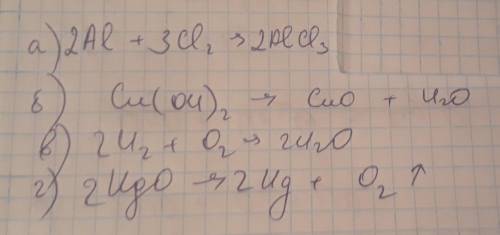 а) 2Al + 3Cl₂ → 2AlCl₃
б) Cu(OH)₂ → CuO + H₂O
в) 2H₂ + O₂ → 2H₂O
г) 2HgO → 2Hg + O₂ ↑